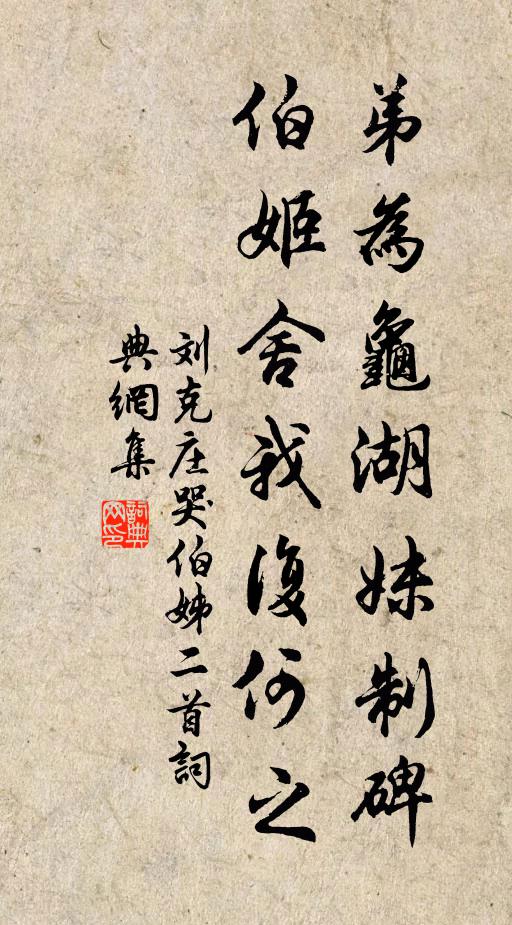 弟為龜湖妹制碑
伯姬舍我復何之
刘克庄哭伯姊二首詞
典網集
詞典
网印